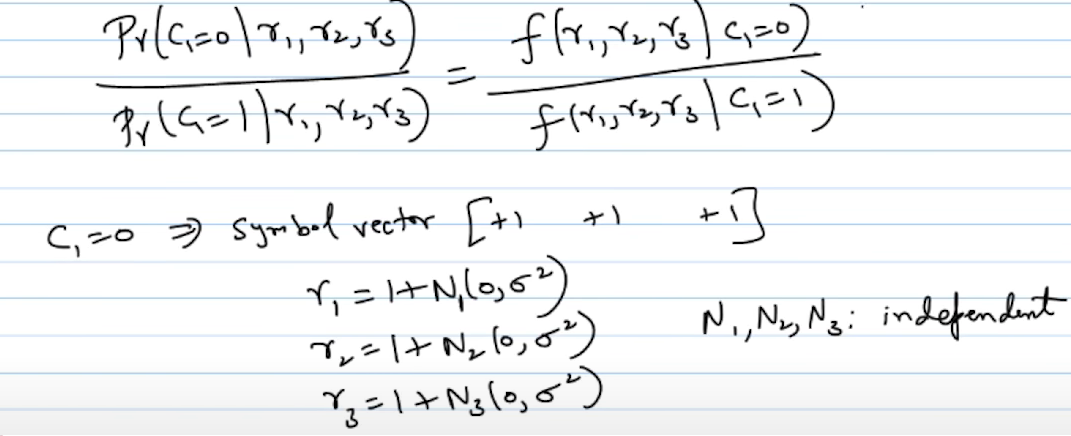 Pr(C₁=0 | r₁, r₂, r₃) / Pr(C₁=1 | r₁, r₂, r₃) = f(r₁, r₂, r₃ | C₁=0) / f(r₁, r₂, r₃ | C₁=1)
C₁=0 ⇒ symbol vector [+1 +1 +1]
r₁ = 1 + N₁(0, σ²)
r₂ = 1 + N₂(0, σ²) N₁, N₂, N₃: independent
r₃ = 1 + N₃(0, σ²)